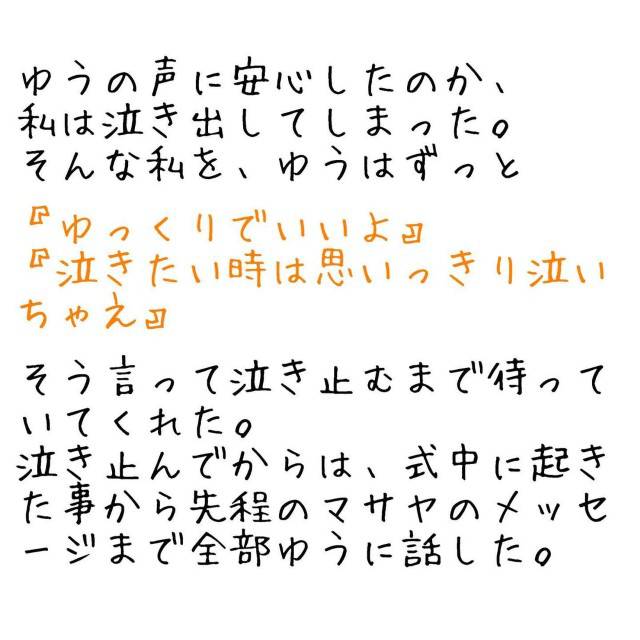 ゆうの声に安心したのか、
私は泣き出してしまった。
そんな私を、ゆうはずっと
『ゆっくりでいいよ』
『泣きたい時は思いっきり泣い
ちゃえ』
そう言って泣き止むまで待って
いてくれた。
泣き止んでからは、式中に起き
た事から先程のマサヤのメッセ
ージまで全部ゆうに話した。